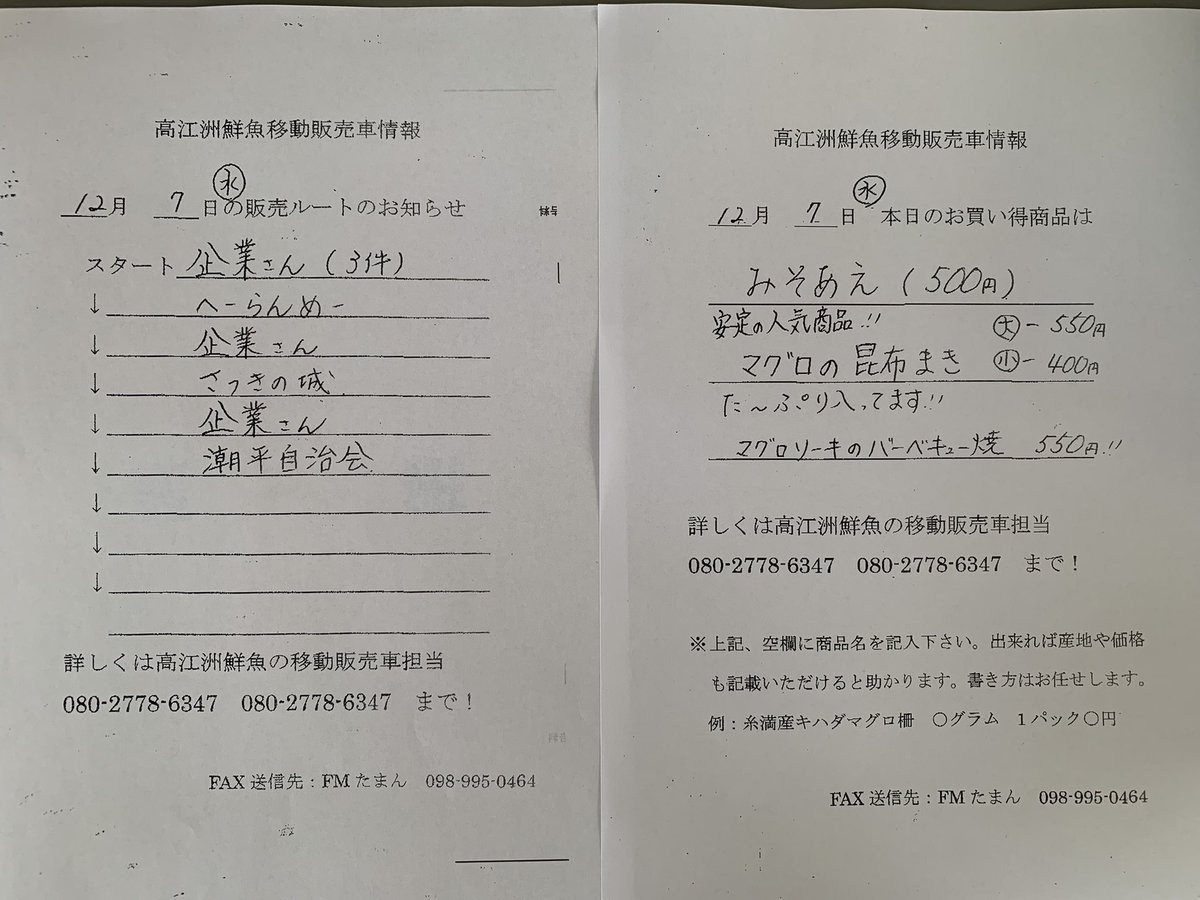 高江洲鮮魚移動販売車情報
㊌
12月 7日の販売ルートのお知らせ
スタート 企業さん(3件)
↓ へーらんめー
↓ 企業さん
↓ さつきの城
↓ 企業さん
↓ 潮平自治会
↓
↓
↓
詳しくは高江洲鮮魚の移動販売車担当
080-2778-6347 080-2778-6347 まで!
FAX送信先:FMたまん 098-995-0464
高江洲鮮魚移動販売車情報
㊌
12月 7日 本日のお買い得商品は
みそあえ(500円)
安定の人気商品!! 大-550円
マグロの昆布まき 小-400円
た~ぷり入ってます!!
マグロソーキのバーベキュー焼 550円!!
詳しくは高江洲鮮魚の移動販売車担当
080-2778-6347 080-2778-6347 まで!
※上記、空欄に商品名を記入下さい。出来れば産地や価格
も記載いただけると助かります。書き方はお任せします。
例:糸満産キハダマグロ柵 〇グラム 1パック〇円
FAX送信先:FMたまん 098-995-0464